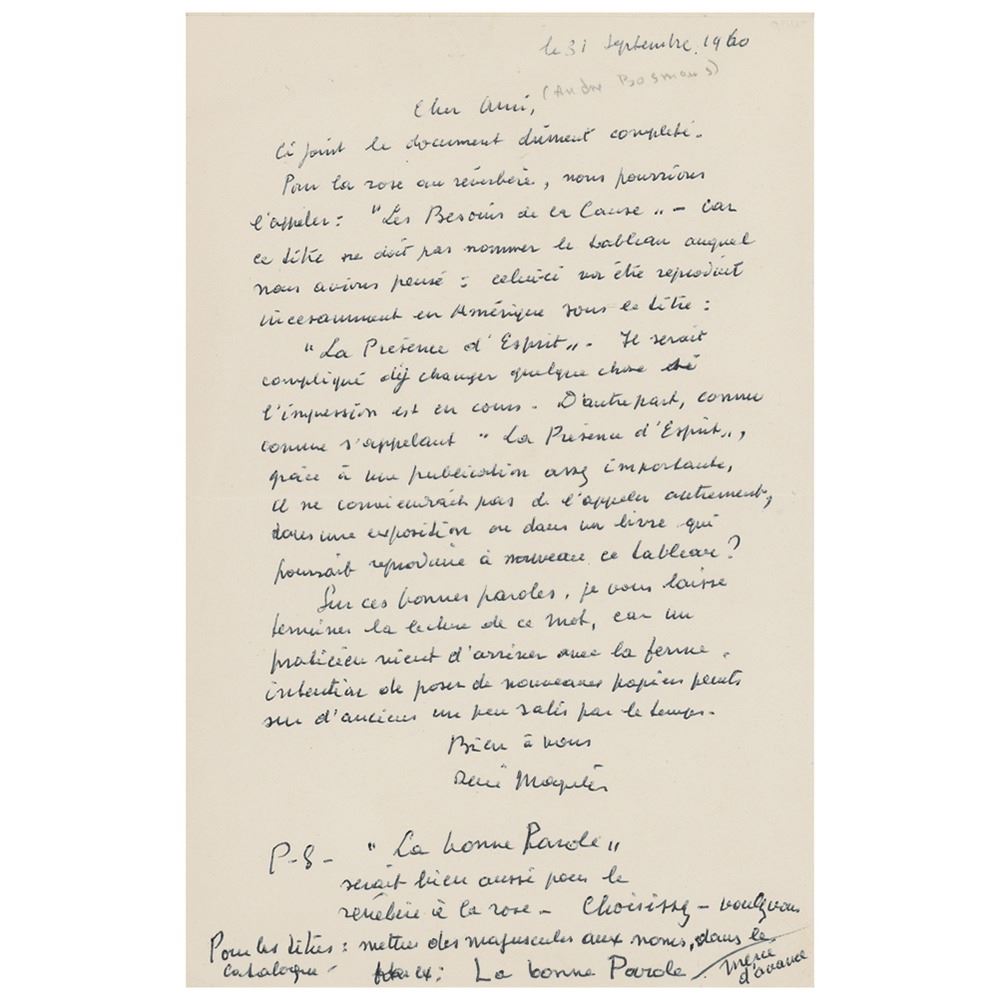 le 31 Septembre 1960
(André Bosmans)
Cher Ami,
Ci joint le document dûment complété.
Pour la rose au réverbère, nous pourrions
l'appeler : "Les Besoins de la Cause" - car
ce titre ne doit pas nommer le tableau auquel
nous avions pensé : celui-ci va être reproduit
incessamment en Amérique sous le titre :
"La Présence d'Esprit". Il serait
compliqué d'y changer quelque chose
l'impression est en cours. D'autre part, connu
comme s'appelant "La Présence d'Esprit",
grâce à une publication assez importante,
il ne conviendrait pas de l'appeler autrement,
dans une exposition ou dans un livre qui
pourrait reproduire à nouveau ce tableau?
Sur ces bonnes paroles, je vous laisse
terminer la lecture de ce mot, car un
praticien vient d'arriver avec la ferme
intention de poser de nouveaux papiers peints
sur d'anciens un peu salis par le temps.
Bien à vous
René Magritte
P-S- "La bonne Parole"
serait bien aussi pour le
réverbère à la rose - Choisissez - voulez vous
Pour les titres : mettre des majuscules aux noms, dans le
catalogue - ex: La bonne Parole / merci
d'avance